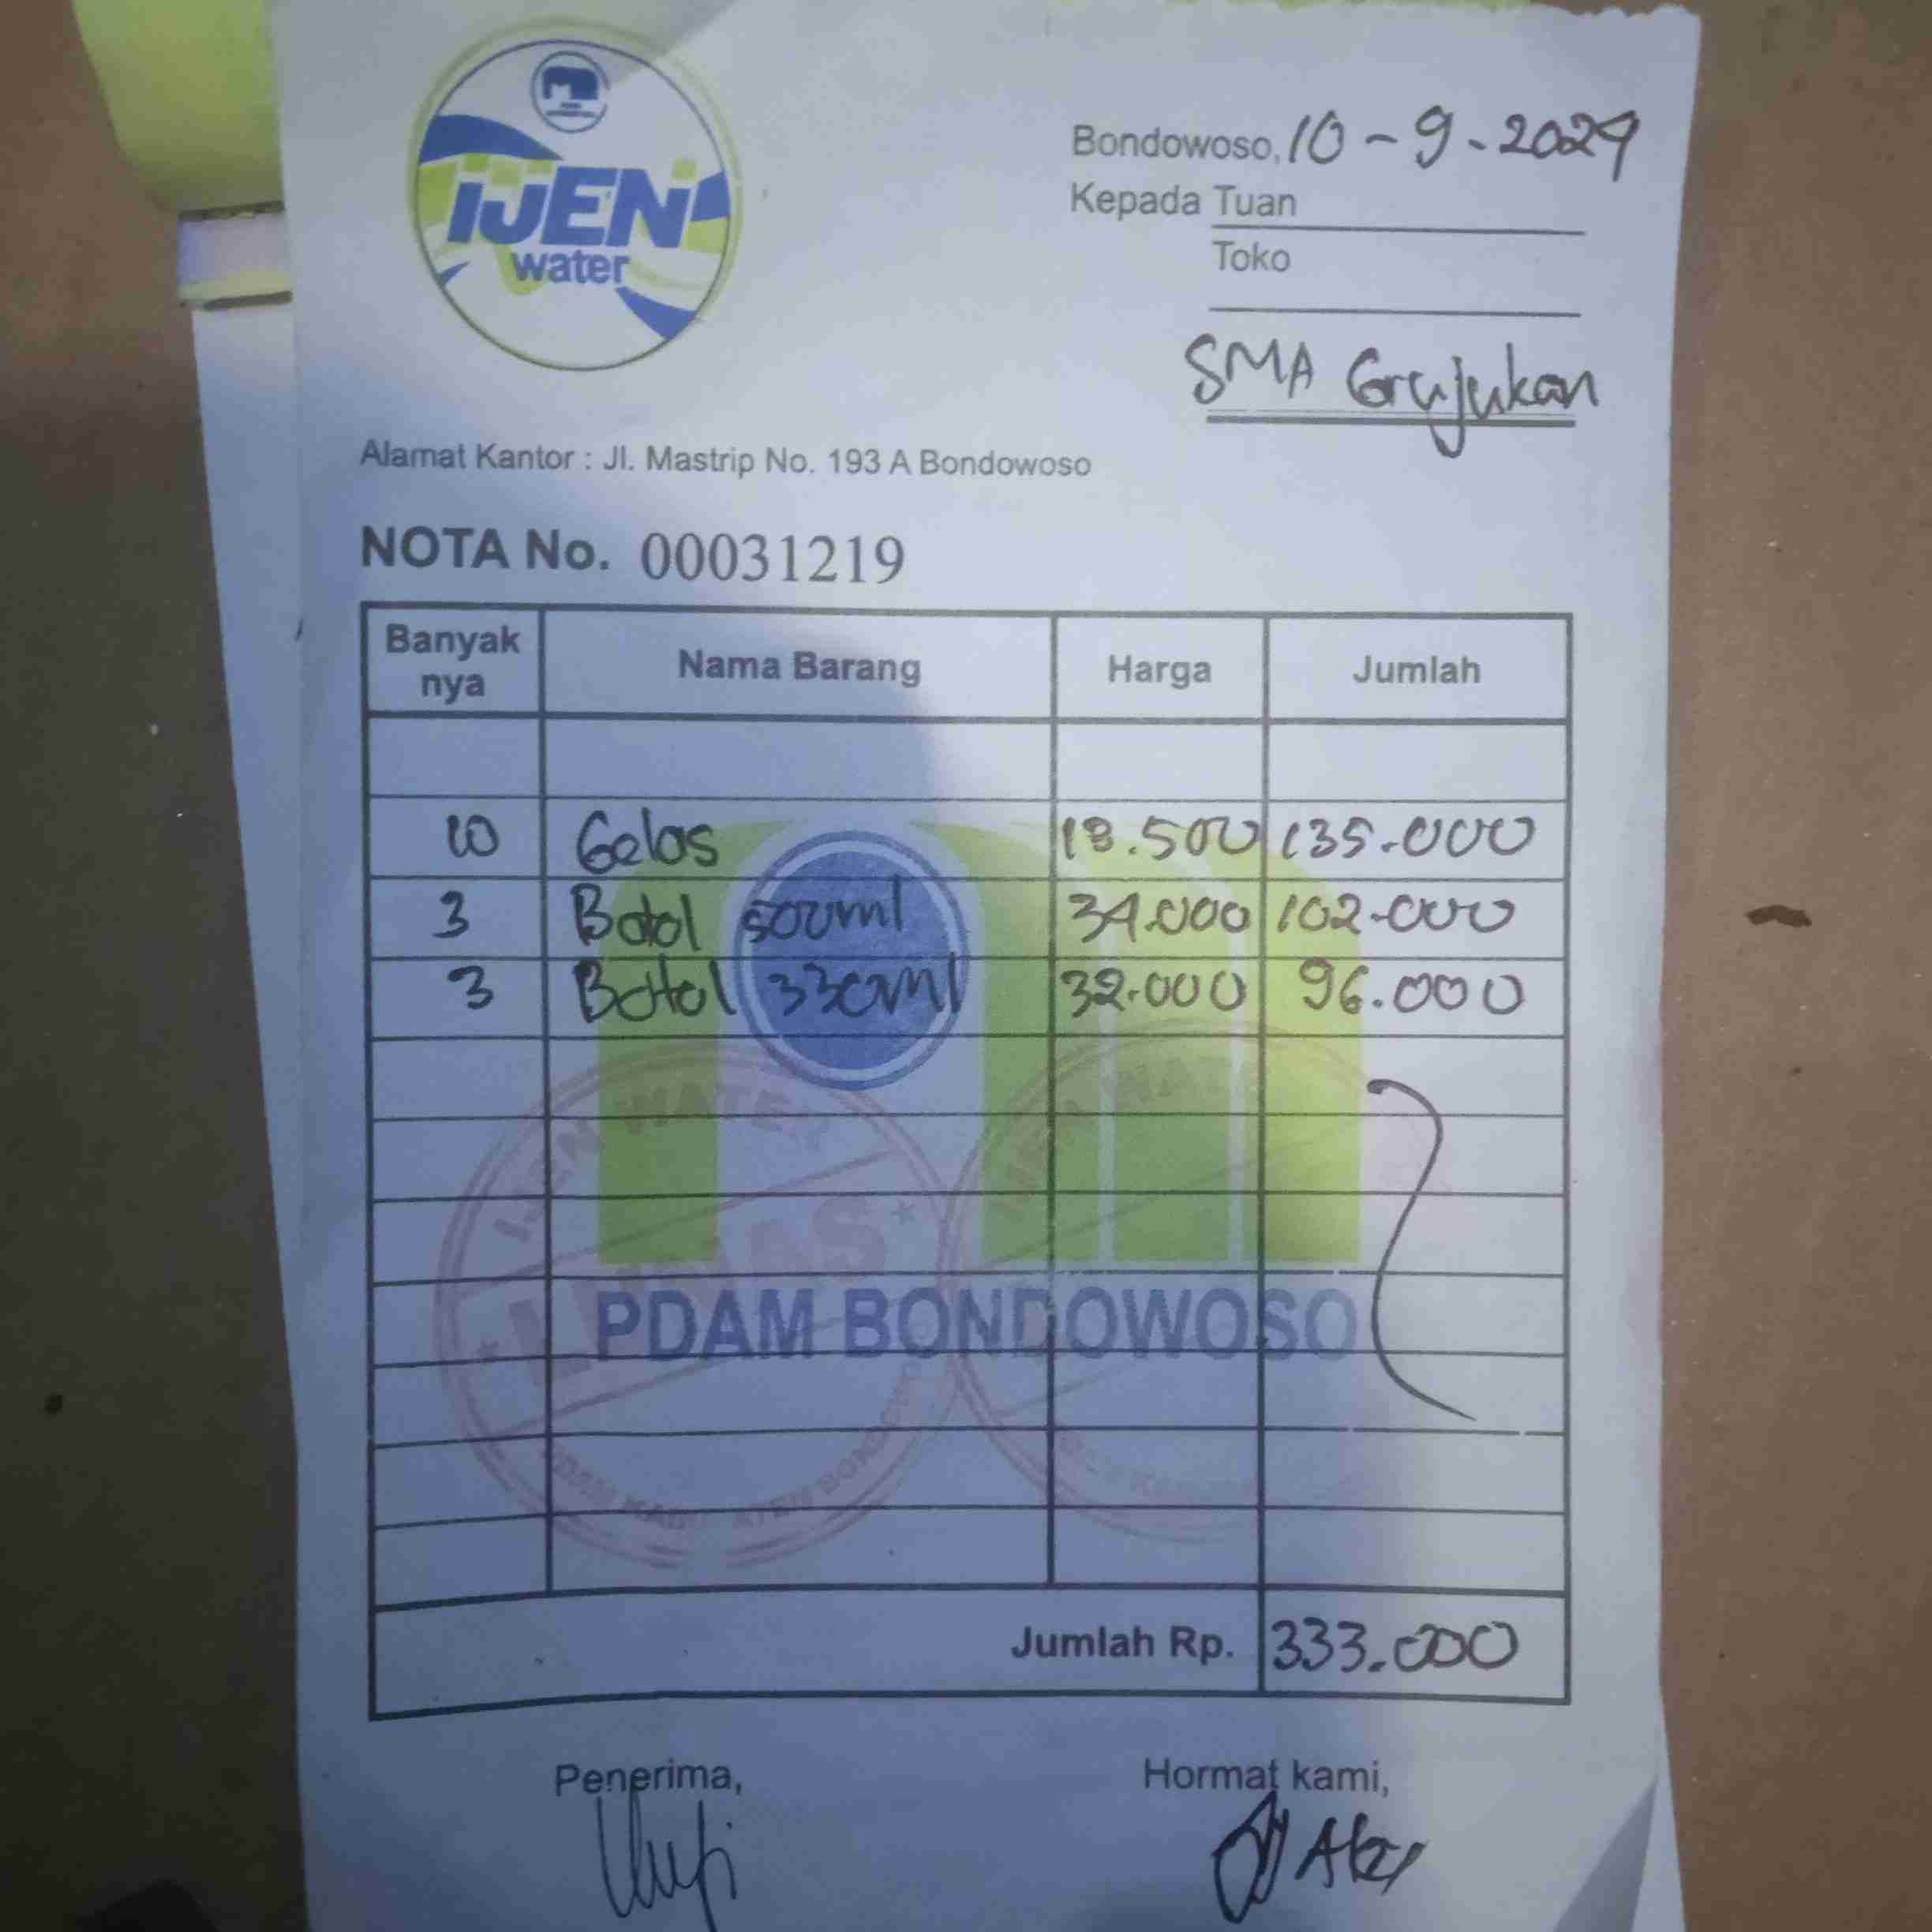 IJEN
water
Bondowoso, 10 - 9 - 2024
Kepada Tuan
Toko
SMA Grujukan
Alamat Kantor : Jl. Mastrip No. 193 A Bondowoso
NOTA No. 00031219
Banyak nya Nama Barang Harga Jumlah
10 Gelas 13.500 135.000
3 Botol 500ml 34.000 102.000
3 Botol 330ml 32.000 96.000
IJEN WATER
LUNAS
PDAM BONDOWOSO
Jumlah Rp. 333.000
Penerima,
Hormat kami,